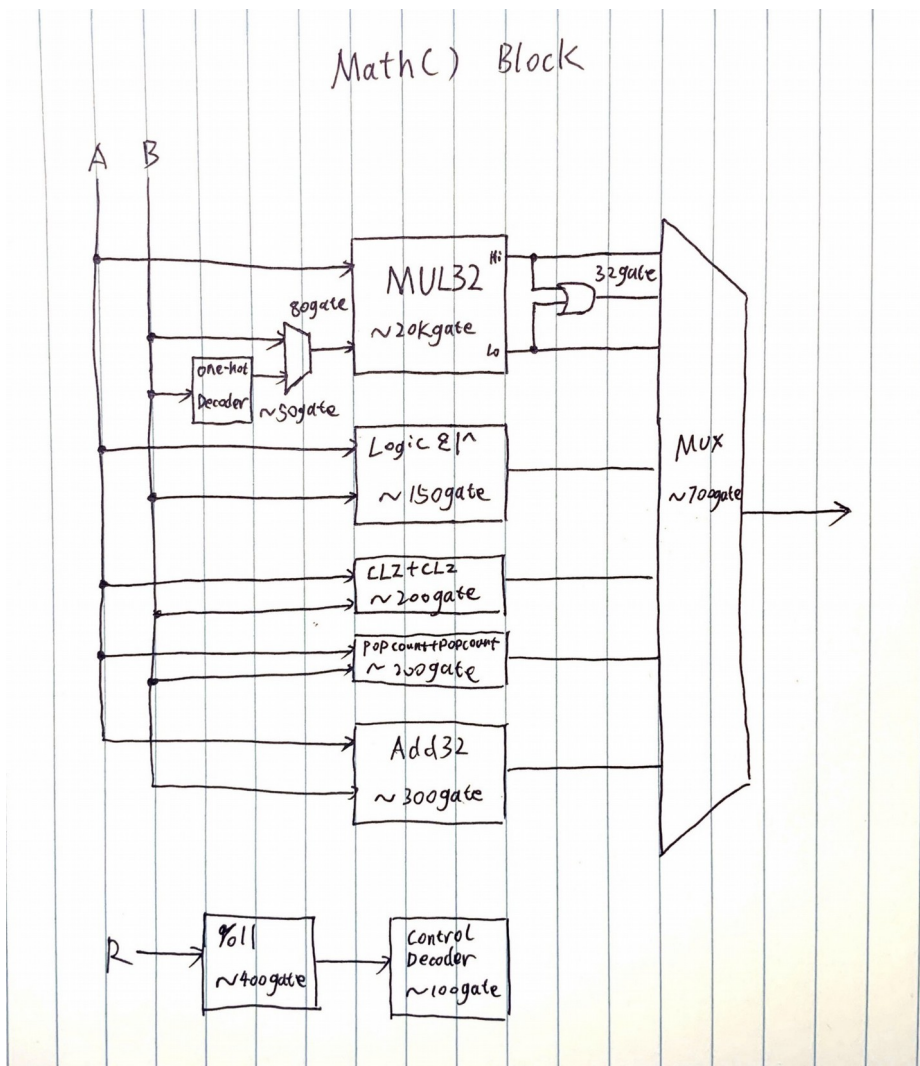 Math() Block
A B
MUL32
~20Kgate
Hi
Lo
32gate
80gate
one-hot
Decoder
~50gate
Logic &|^
~150gate
CLZ+CLZ
~200gate
Popcount+Popcount
~200gate
Add32
~300gate
MUX
~700gate
R
%11
~400gate
Control
Decoder
~100gate